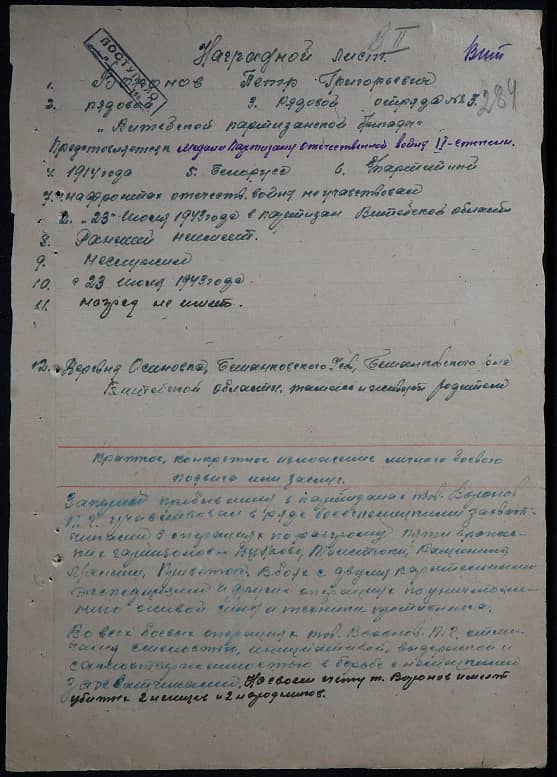 Наградной лист.
II
Вит
ПОСТУПИЛО
284
1. Воронов Петр Григорьевич
2. рядовой 3. Рядовой отряда №3.
"Витебской партизанской бригады"
Представляется к медали Партизану отечественной войны II-степени.
4. 1914 года 5. Белорус 6.
7. на фронтах отечеств. войны не участвовал
с "23" июня 1943 года в партизан Витебской области
8. Ранений не имеет.
9.
10. с 23 июня 1943 года.
11. наград не имеет.
12. Деревня
Витебской области. родители
Краткое, конкретное изложение личного боевого
подвига или заслуг.
прибывания в партизанах тов. Воронов
П.Г. участвовал в ряде боев с немецкими захват-
чиками в операциях по разгрому пяти вражес-
ких гарнизонов
В боях с двумя карательными
экспедициями и других операциях по уничтоже-
нию живой силы и техники противника.
Во всех боевых операциях тов. Воронов П.Г. отли-
чался смелостью, инициативой, выдержкой и
в борьбе с немецкими
захватчиками. На своем счету т. Воронов имеет
убитых 2 немцев и 2 народников.